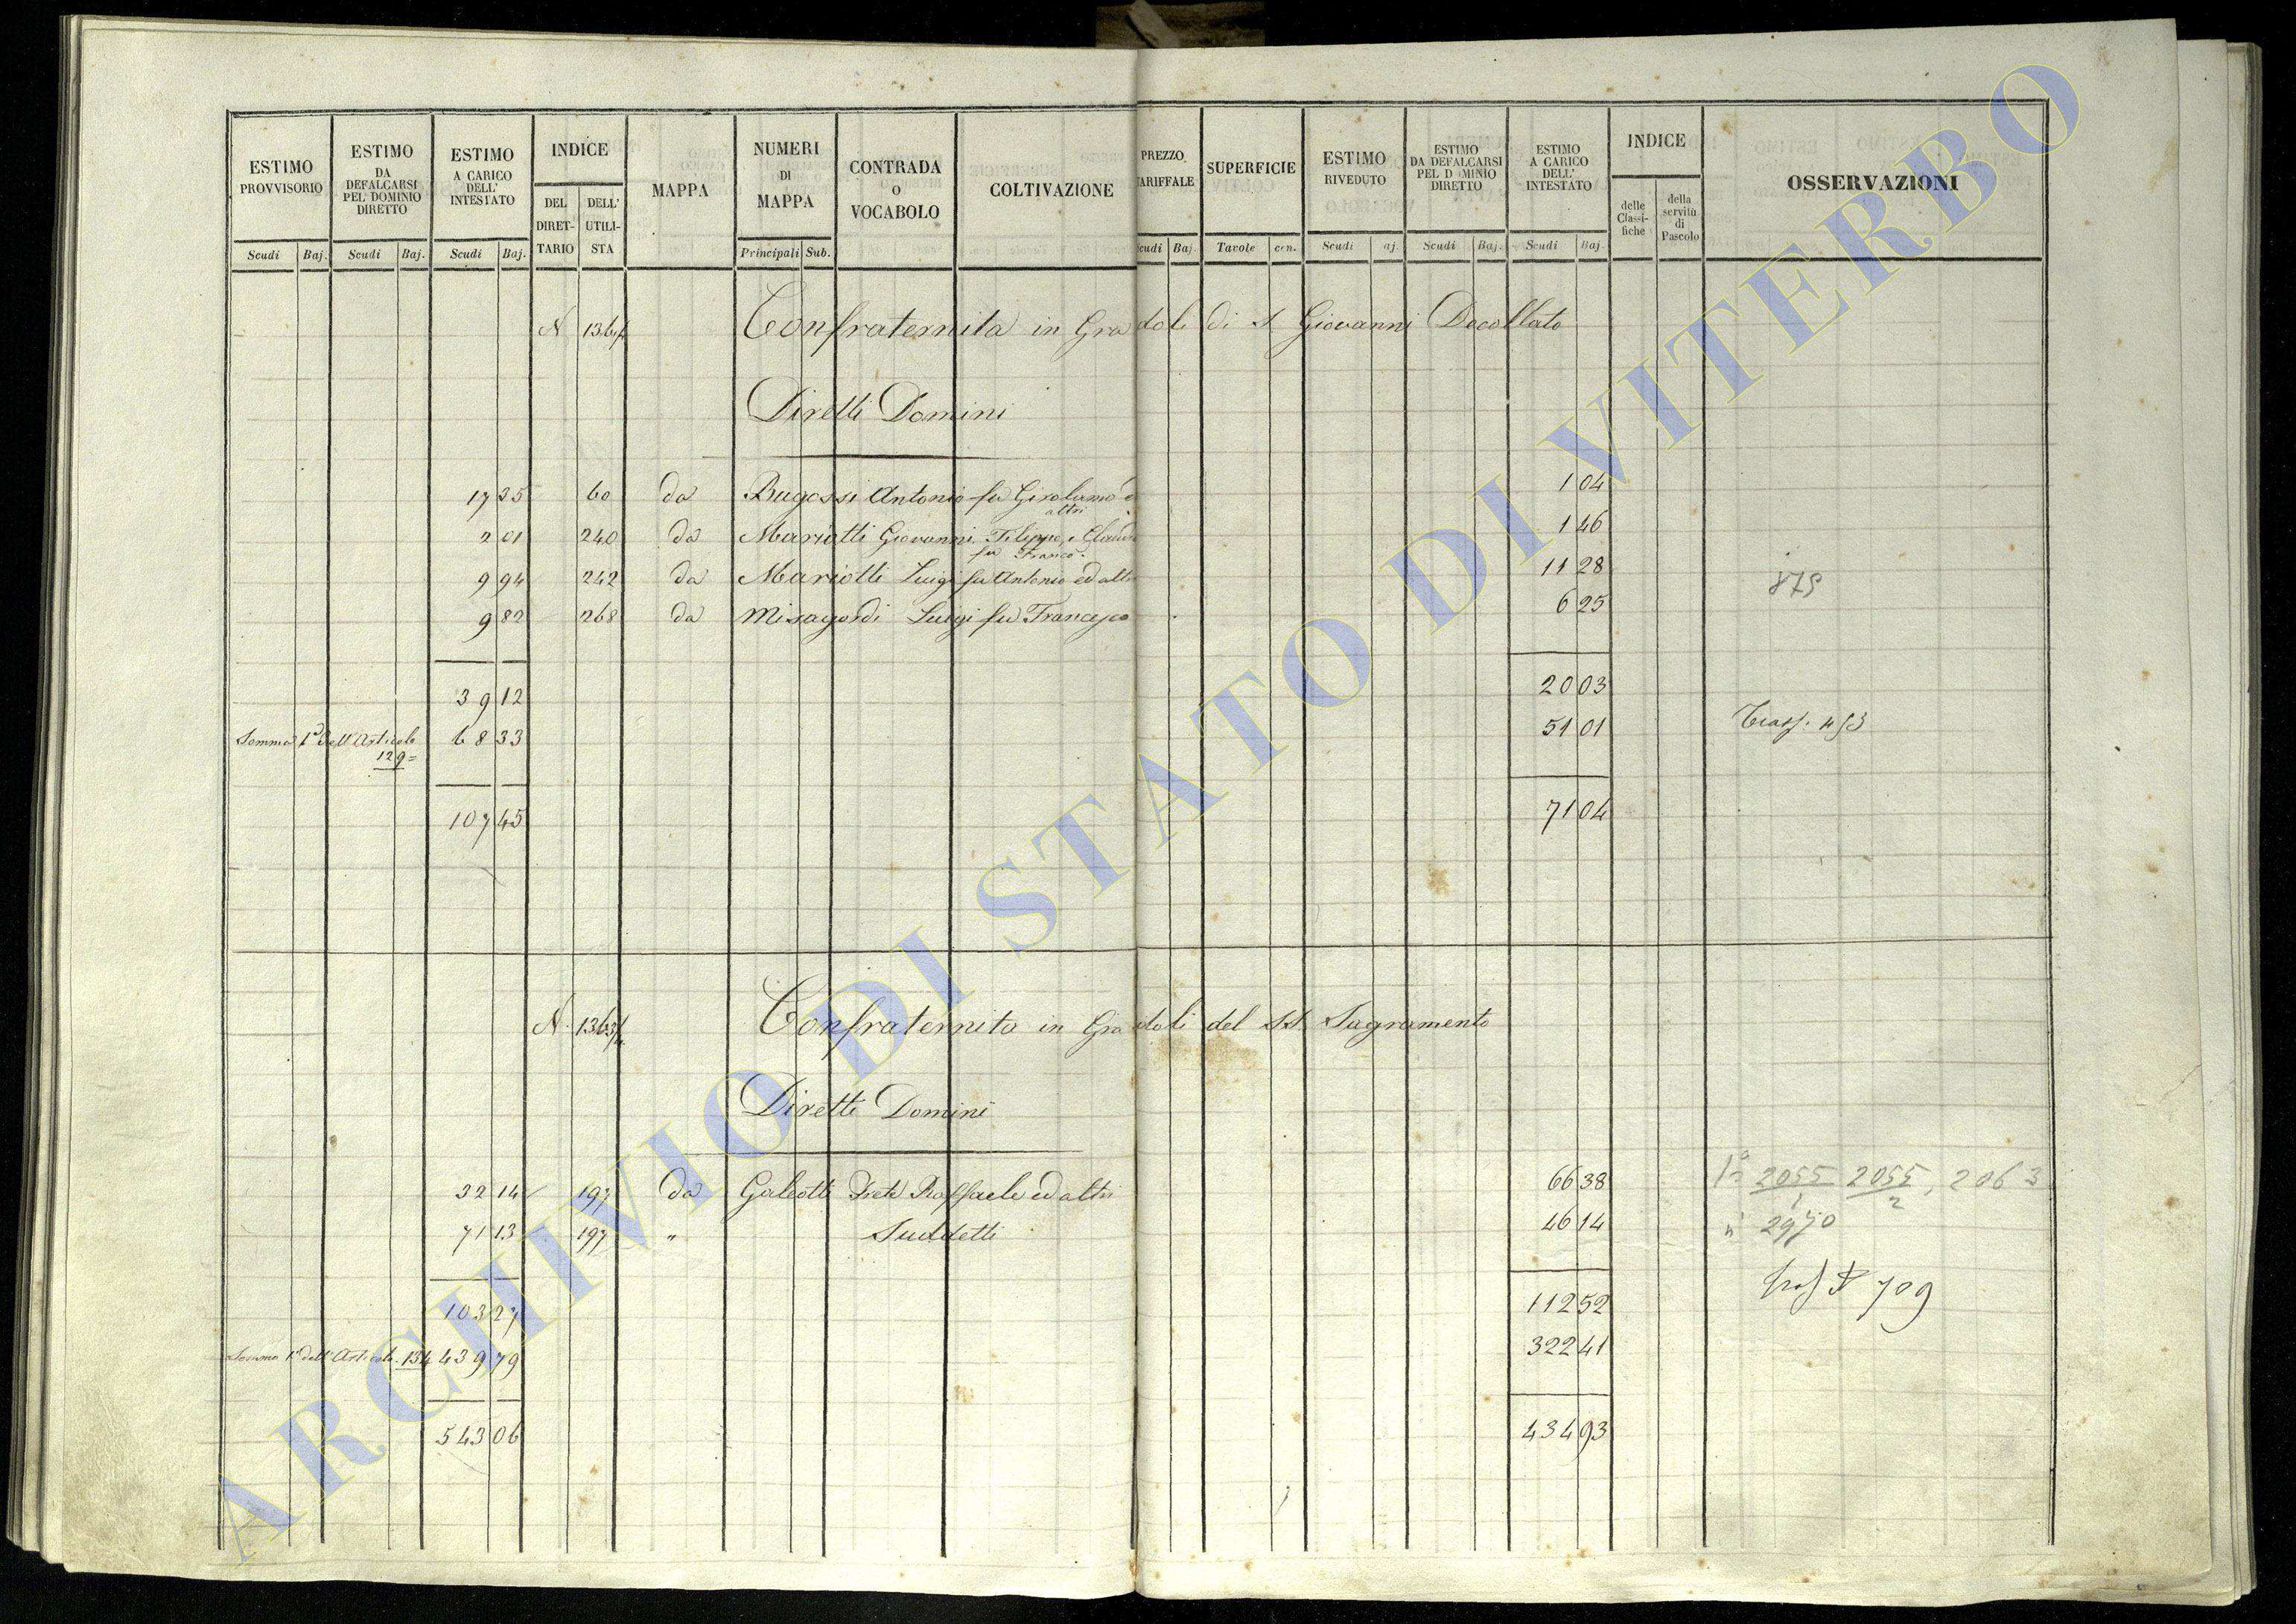 ESTIMO PROVVISORIO Scudi Baj.
ESTIMO DA DEFALCARSI PEL DOMINIO DIRETTO Scudi Baj.
ESTIMO A CARICO DELL' INTESTATO Scudi Baj.
INDICE DEL DIRET-TARIO DELL' UTILI-STA
MAPPA
NUMERI DI MAPPA Principali Sub.
CONTRADA O VOCABOLO
COLTIVAZIONE
PREZZO TARIFFALE Scudi Baj.
SUPERFICIE Tavole cen.
ESTIMO RIVEDUTO Scudi aj.
ESTIMO DA DEFALCARSI PEL DOMINIO DIRETTO Scudi Baj.
ESTIMO A CARICO DELL' INTESTATO Scudi Baj.
INDICE delle Classi-fiche della servitù di Pascolo
OSSERVAZIONI
N. Confraternita in Gradoli di S Giovanni Decollato
Diretti Domini
17 35 60 da Bugossi Antonio fu Girolamo altri 1 04
2 01 240 da Mariotti Giovanni Filippo, e fu Franco. 1 46
9 94 242 da Mariotti Luigi fu Antonio ed altri 11 28
9 82 268 da Misagordi Luigi fu Francesco 6 25
879
39 12 20 03
Somma 1a dell'Articolo 129= 68 33 51 01 Trasp. 453
107 45 71 04
N. Confraternita in Gradoli del SS. Sagramento
Diretti Domini
32 14 197 da Galeotti Prete Raffaele ed altri 66 38 2055/1 2055/2, 2063
71 13 197 " Suddetti 46 14 n 2970
103 27 112 52 709
Somma 1a dell'Articolo 134 439 79 322 41
543 06 434 93
ARCHIVIO DI STATO DI VITERBO